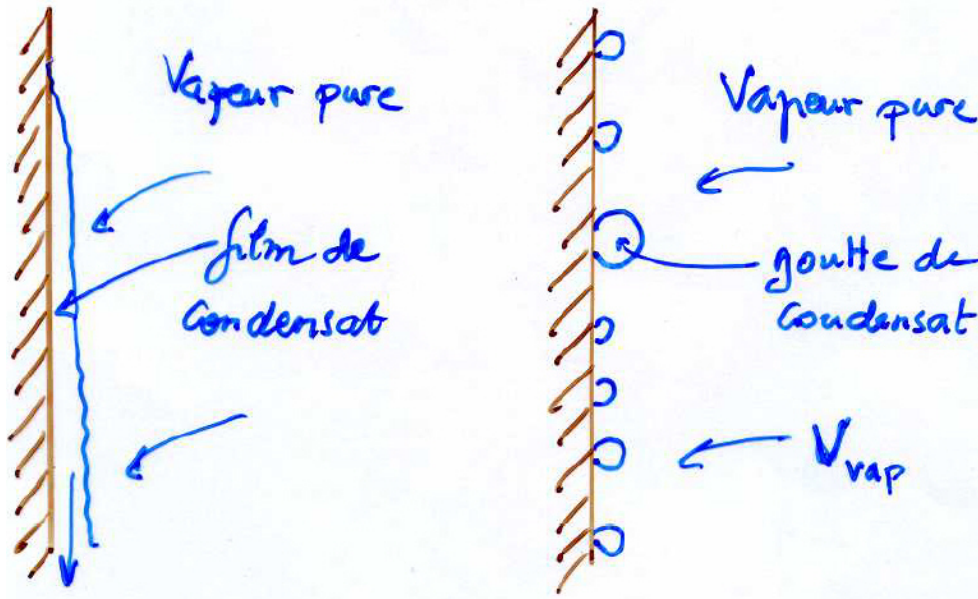 Vapeur pure
film de
condensat
Vapeur pure
goutte de
condensat
V_vap